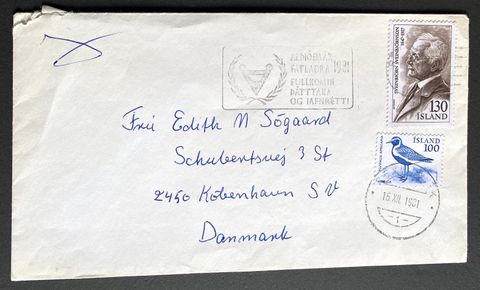 ALÞJÓÐAÁR
FATLAÐRA 1981
FULLKOMIN
ÞÁTTTAKA
OG JAFNRÉTTI
SVEINBJÖRN SVEINBJÖRNSSON
1847-1927
130
ÍSLAND
ÍSLAND
100
16 XII. 1981
-1-
Frú Edith M Sögaard
Schubertsvej 3 St
2450 Köbenhavn SV
Danmark